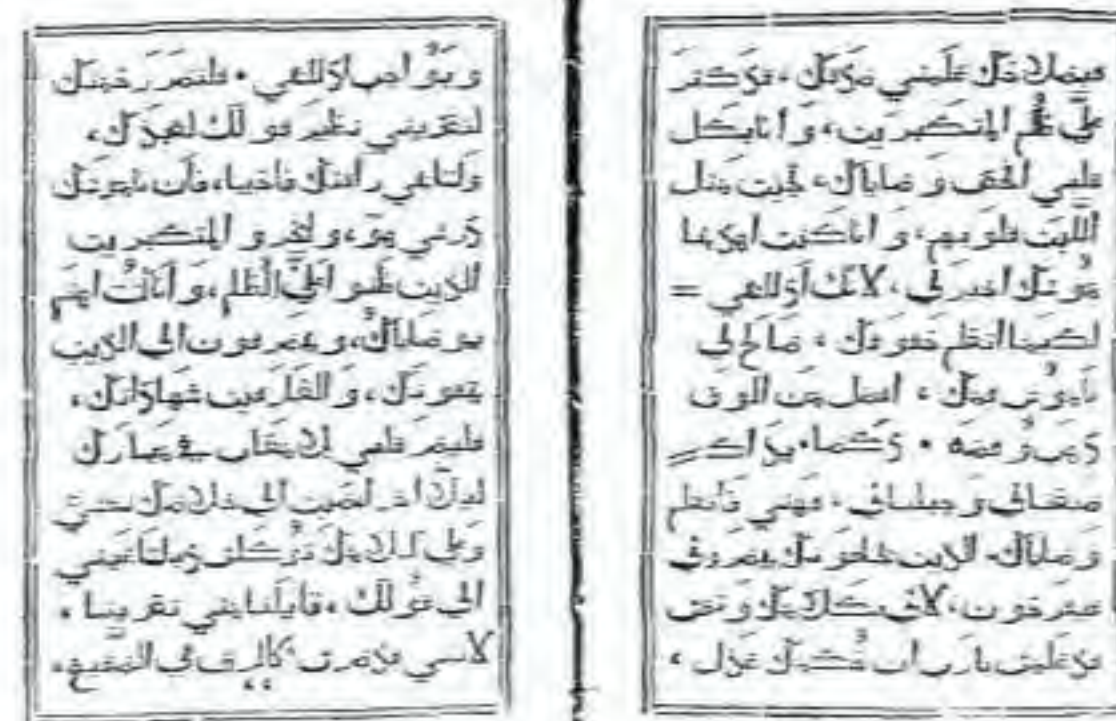 فبصلاحك علمني حقوقك، قد كثر
علي ظلم المتكبرين، و انا بكل
قلبي افحص و صاياك، تجبن مثل
اللبن قلوبهم، و انا كنت
اخير لي، لانك اذللتني =
لكيما اتعلم حقوقك، صالح لي
ناموس فمك، افضل من الوف
ذهب و فضه • و كما يداك
صنعتاني و جبلتاني، فهمني فاتعلم
وصاياك، الذين يخافونك يبصروني
فيفرحون، لاني بكلامك وثقت
قد علمت يا رب ان حكمك عدل،
و بحق اذللتني • فلتصر رحمتك
لتعزيني نظير قولك لعبدك،
ولتاتني رافتك فاحيا، فان ناموسك
درسي هو، و ليخز و المتكبرين
الذين الظلم، و انا كنت اهتم
بوصاياك، و يصرفون الي الذين
يتقونك، و العارفين شهاداتك،
فليصر قلبي بلا عاب في
لان الى خلاصك نفسي
و على كلامك توكلت و كلتا عيني
الى قولك، قايلتا متى تعزينا،
لانني قد صرت كالزق في الصقيع،